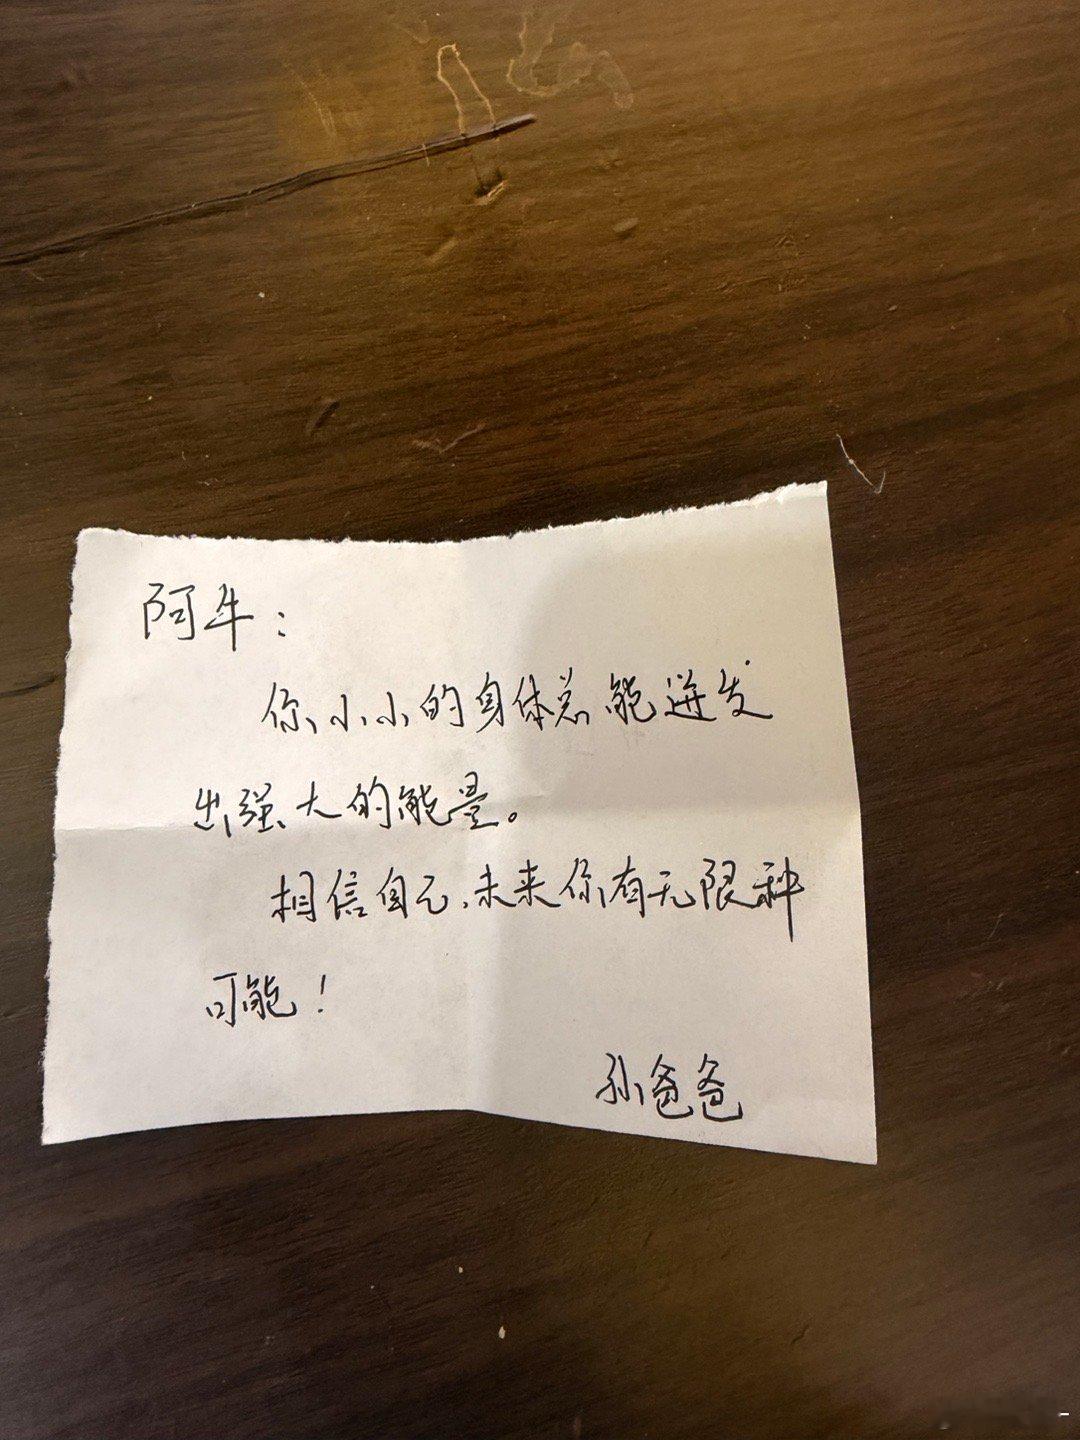 阿牛：
你小小的身体总能迸发
出强大的能量。
相信自己，未来你有无限种
可能！
孙爸爸